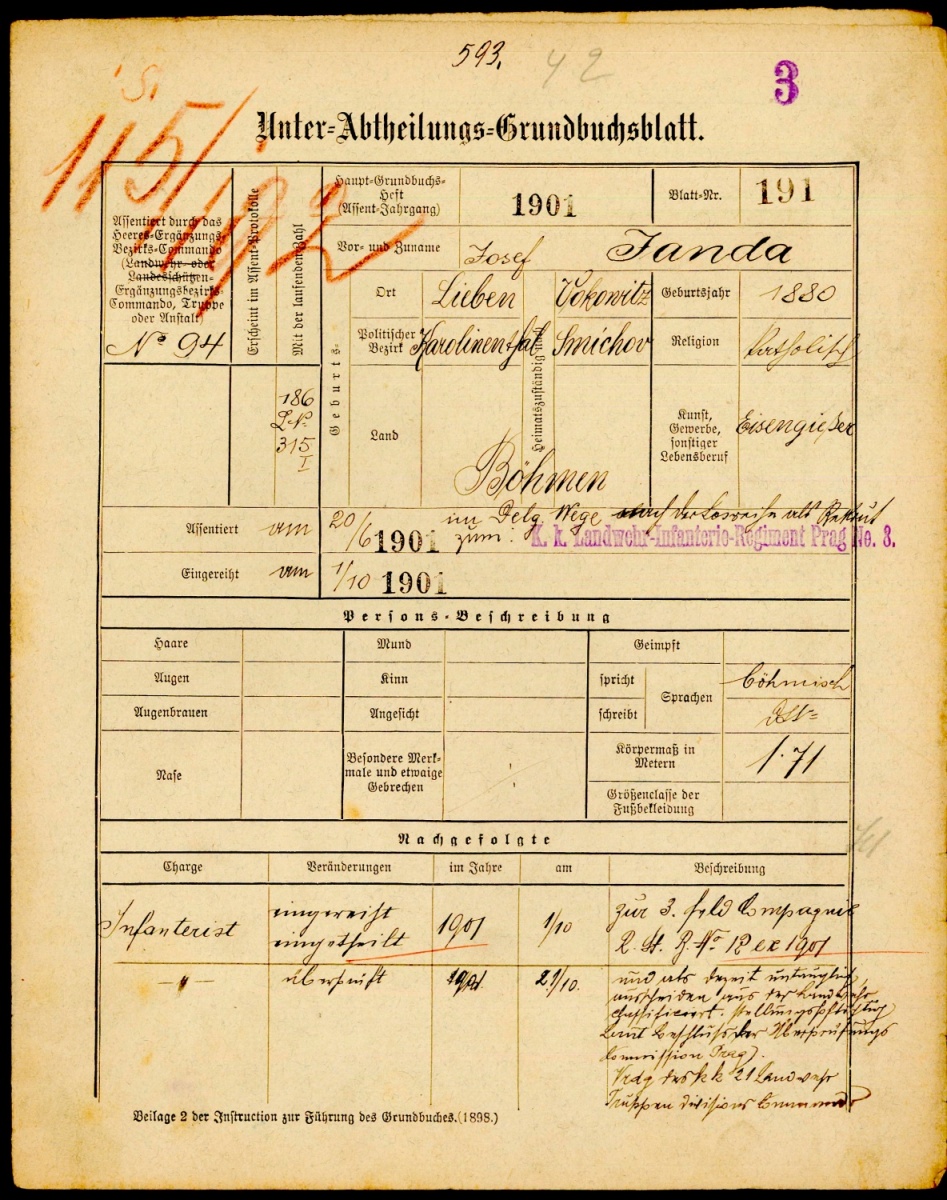 593.
42
3
115/
192
Unter-Abtheilungs-Grundbuchsblatt.
Assentiert durch das
Heeres-Ergänzungs-
Bezirks-Commando
(Landwehr- oder
Landesschützen-
Ergänzungsbezirks-
Commando, Truppe
oder Anstalt)
No 94
Erscheint im Assent-Protokolle
Mit der laufenden Zahl
186
L No
315
I
Haupt-Grundbuchs-
Heft
(Assent-Jahrgang)
1901
Blatt-Nr.
191
Vor- und Zuname
Josef Janda
Geburts-
Ort
Lieben
Heimatszuständig
Vokowitz
Geburtsjahr
1880
Politischer
Bezirk
Karolinenthal
Smichov
Religion
katholisch
Land
Böhmen
Kunst,
Gewerbe,
sonstiger
Lebensberuf
Eisengießer
Assentiert am 20/6 1901 im Delg. Wege nach der Losreihe als Rekrut
zum: K. k. Landwehr-Infanterie-Regiment Prag No. 8.
Eingereiht am 1/10 1901
Persons-Beschreibung
Haare
Mund
Geimpft
Augen
Kinn
spricht
Sprachen
böhmisch
Augenbrauen
Angesicht
schreibt
Nase
Besondere Merk-
male und etwaige
Gebrechen
Körpermaß in
Metern
1·71
Größenclasse der
Fußbekleidung
Nachgefolgte
Charge Veränderungen im Jahre am Beschreibung
Infanterist eingereiht 1901 1/10 zur 3. Feld Compagnie
eingetheilt R. St. B. No 12 ex 1901
-"- überprüft 1901 29/10. und als derzeit untauglich,
ausscheiden aus der Landwehr
classificiert. stellungspflichtig
laut Beschluss der Überprüfungs
Commission Prag).
Vrdg des kk 21 Landwehr
Truppen divisions Commando
Beilage 2 der Instruction zur Führung des Grundbuches. (1898.)